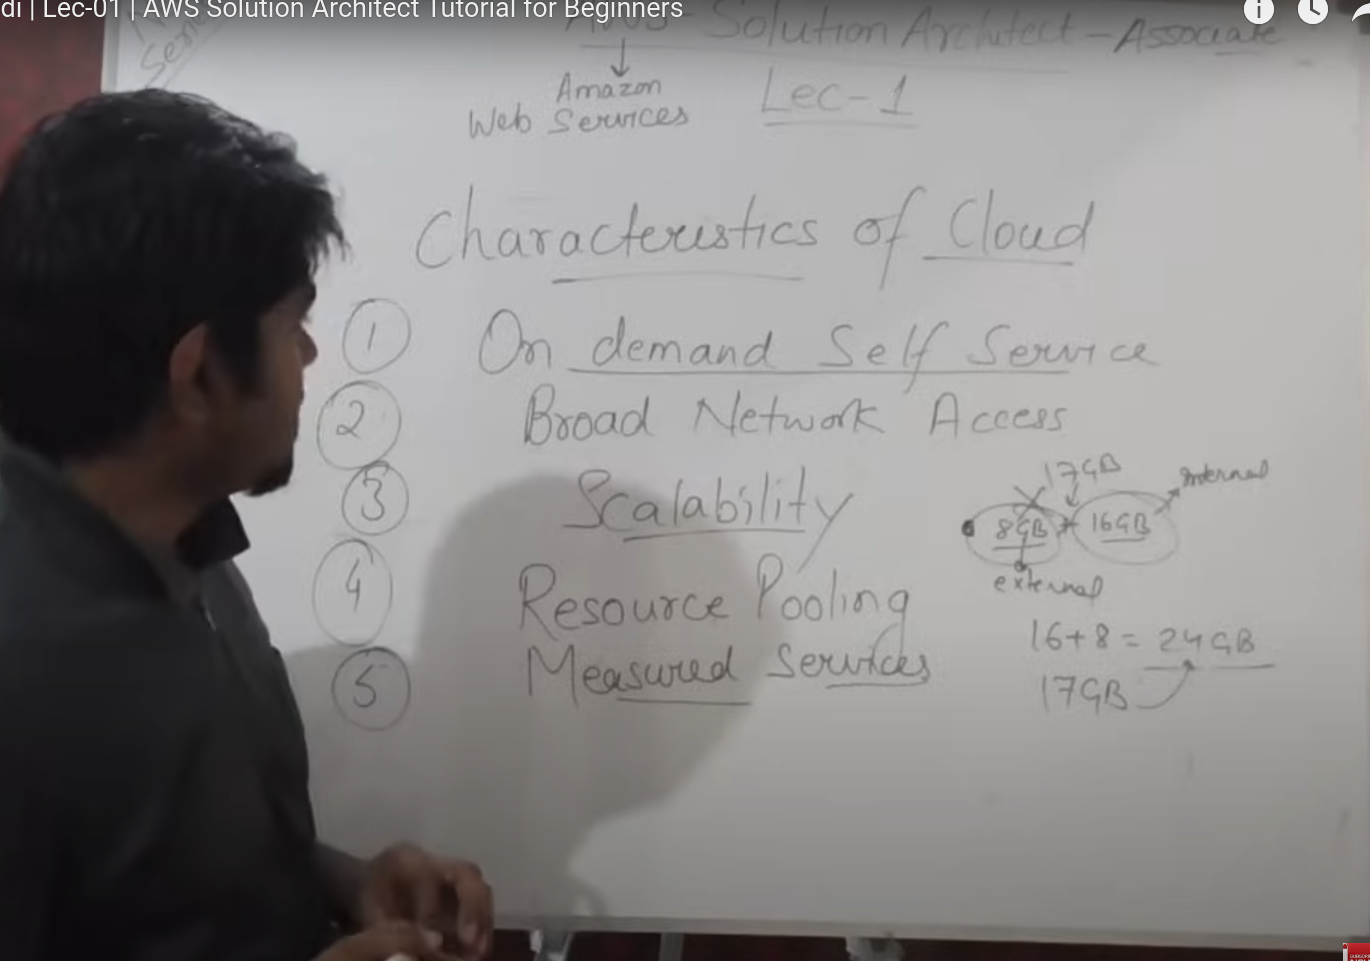 di | Lec-01 | AWS Solution Architect Tutorial for Beginners
AWS - Solution Architect - Associate
Amazon
Web Services
Lec-1
Characteristics of Cloud
1 On demand Self Service
2 Broad Network Access
3 Scalability
4 Resource Pooling
5 Measured Services
17GB
internal
8GB + 16GB
external
16+8 = 24GB
17GB